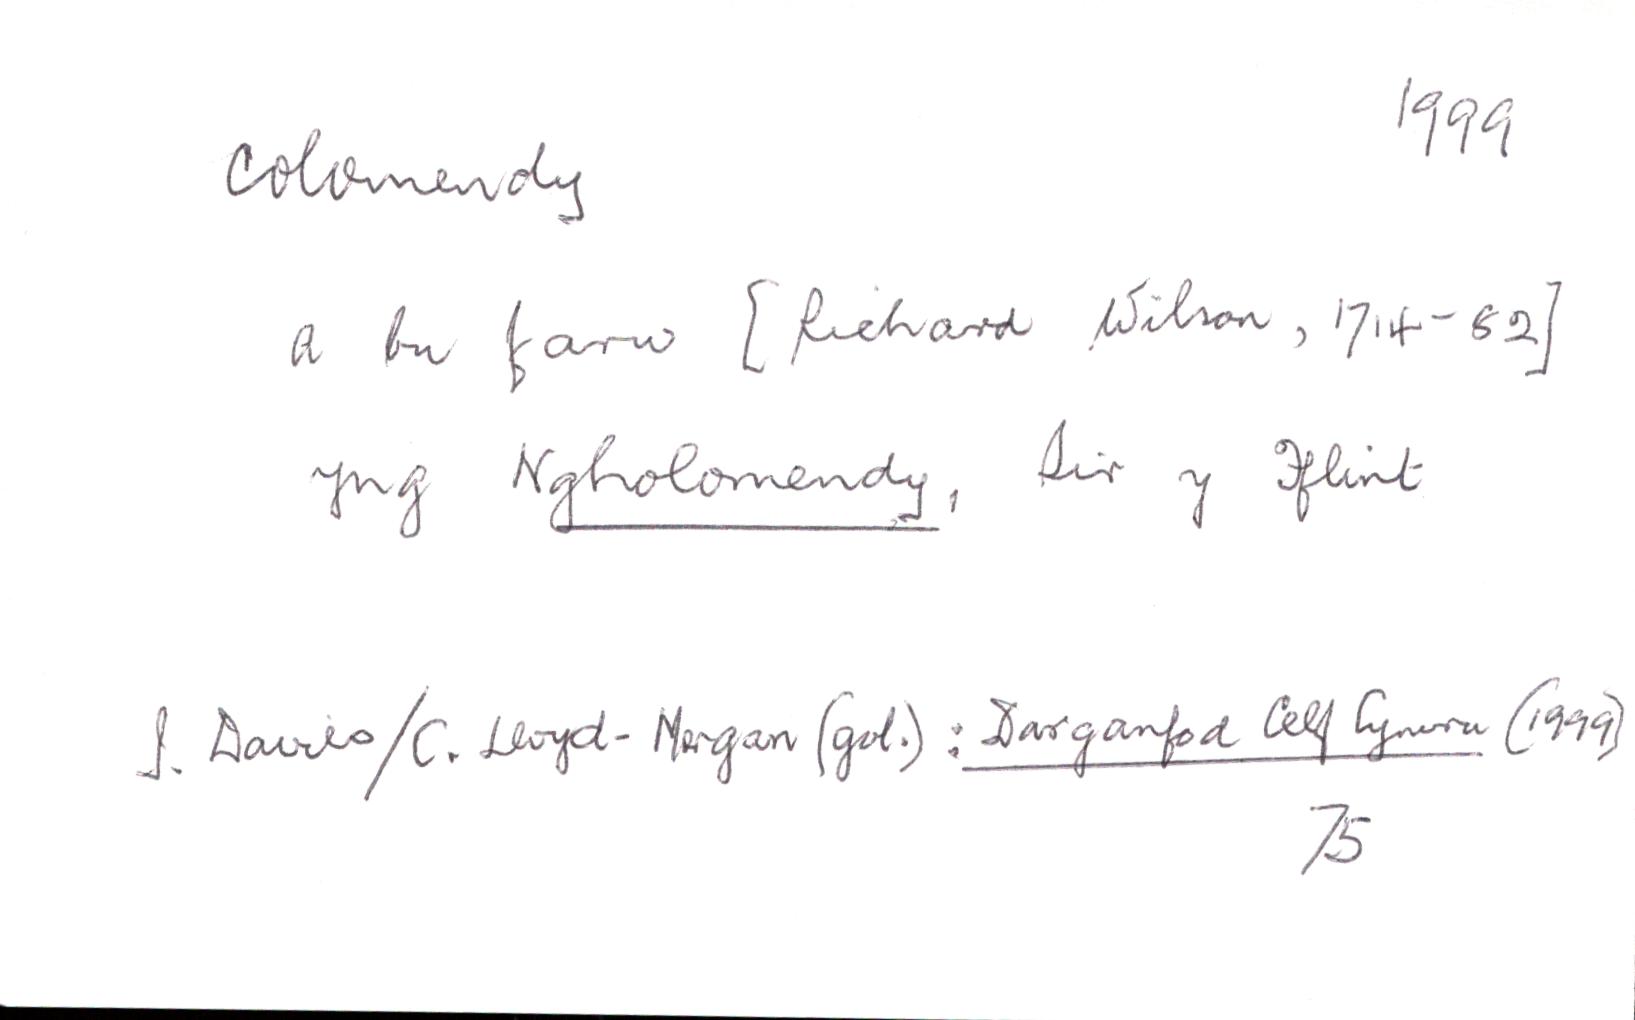 1999
colomendy
a bu farw [Richard Wilson, 1714-82]
yng Ngholomendy, Sir y Fflint
I. Davies/C. Lloyd-Morgan (gol.): Darganfod Celf Cymru (1999)
75